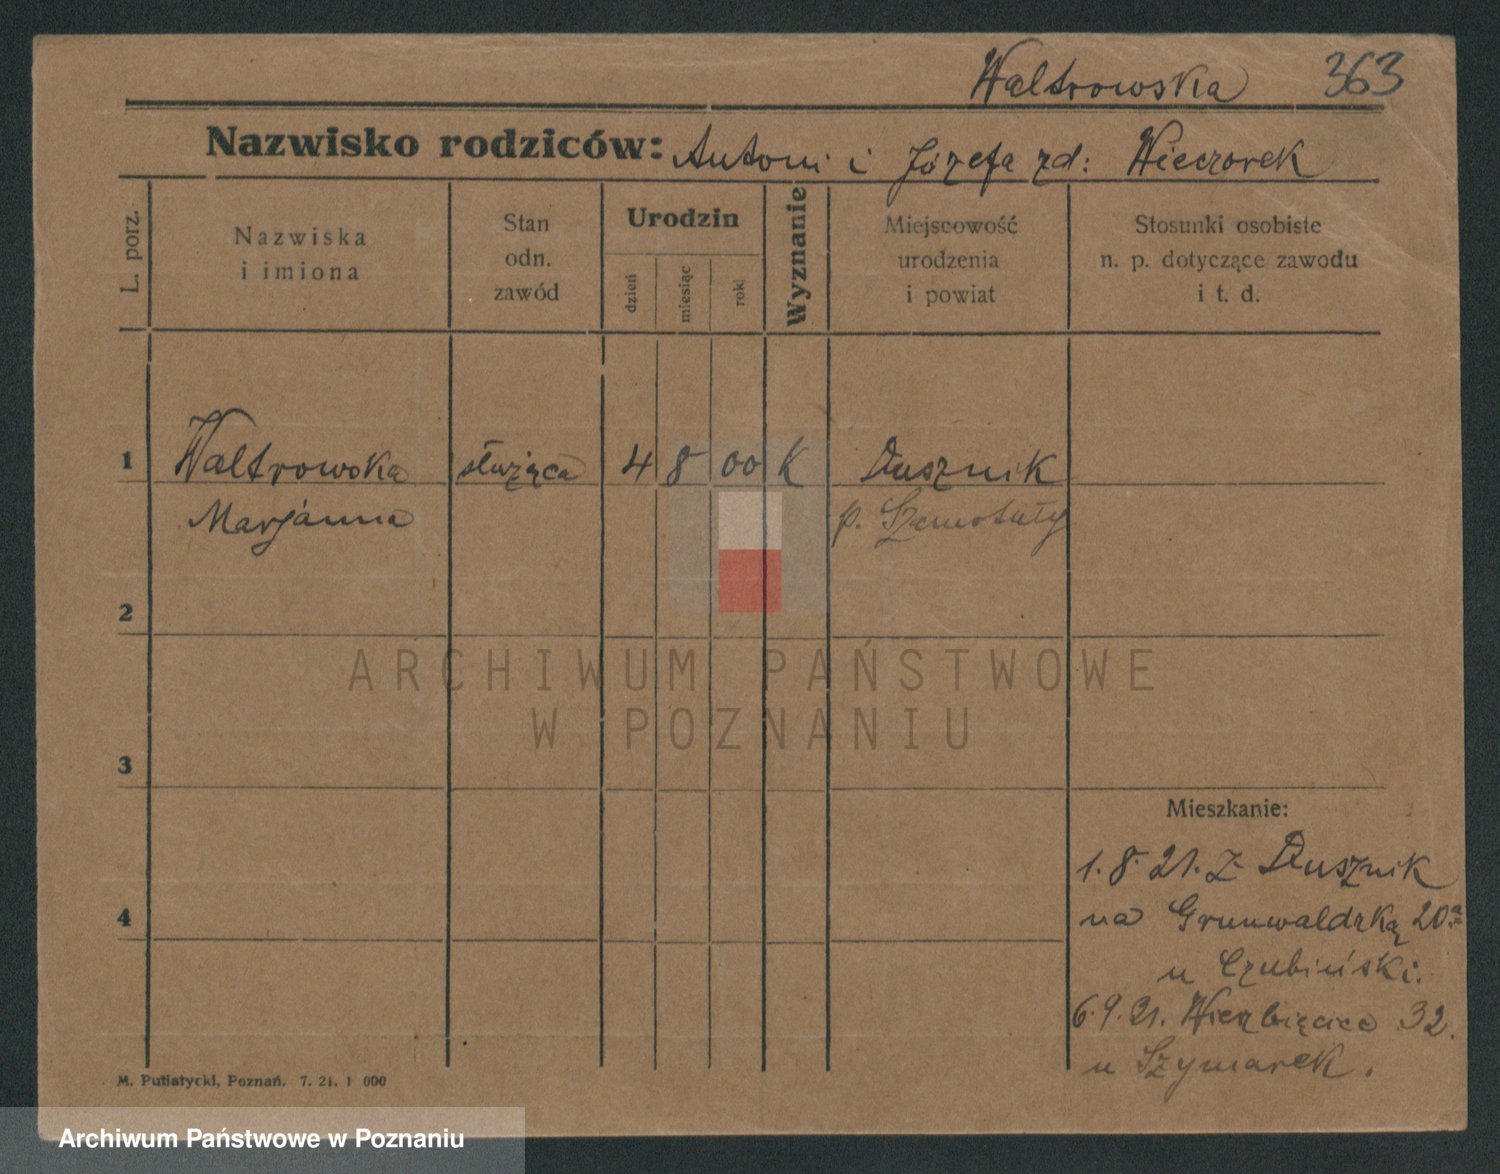 Waltrowska 363
Nazwisko rodziców: Antoni i Józefa zd: Wieczorek
L. porz.
Nazwiska
i imiona
Stan
odn.
zawód
Urodzin
dzień
miesiąc
rok
Wyznanie
Miejscowość
urodzenia
i powiat
Stosunki osobiste
n. p. dotyczące zawodu
i t. d.
1 Waltrowska służąca 4 8 00 K Dusznik
Marjanna p. Szamotuły
2
ARCHIWUM PAŃSTWOWE
W POZNANIU
3
Mieszkanie:
1. 8. 21. z Dusznik
4
na Grunwaldzką 20a
u Czubiński.
6. 9. 21. Wierzbięcice 32.
u Szymarek.
M. Putiatycki, Poznań. 7. 21. 1 000
Archiwum Państwowe w Poznaniu